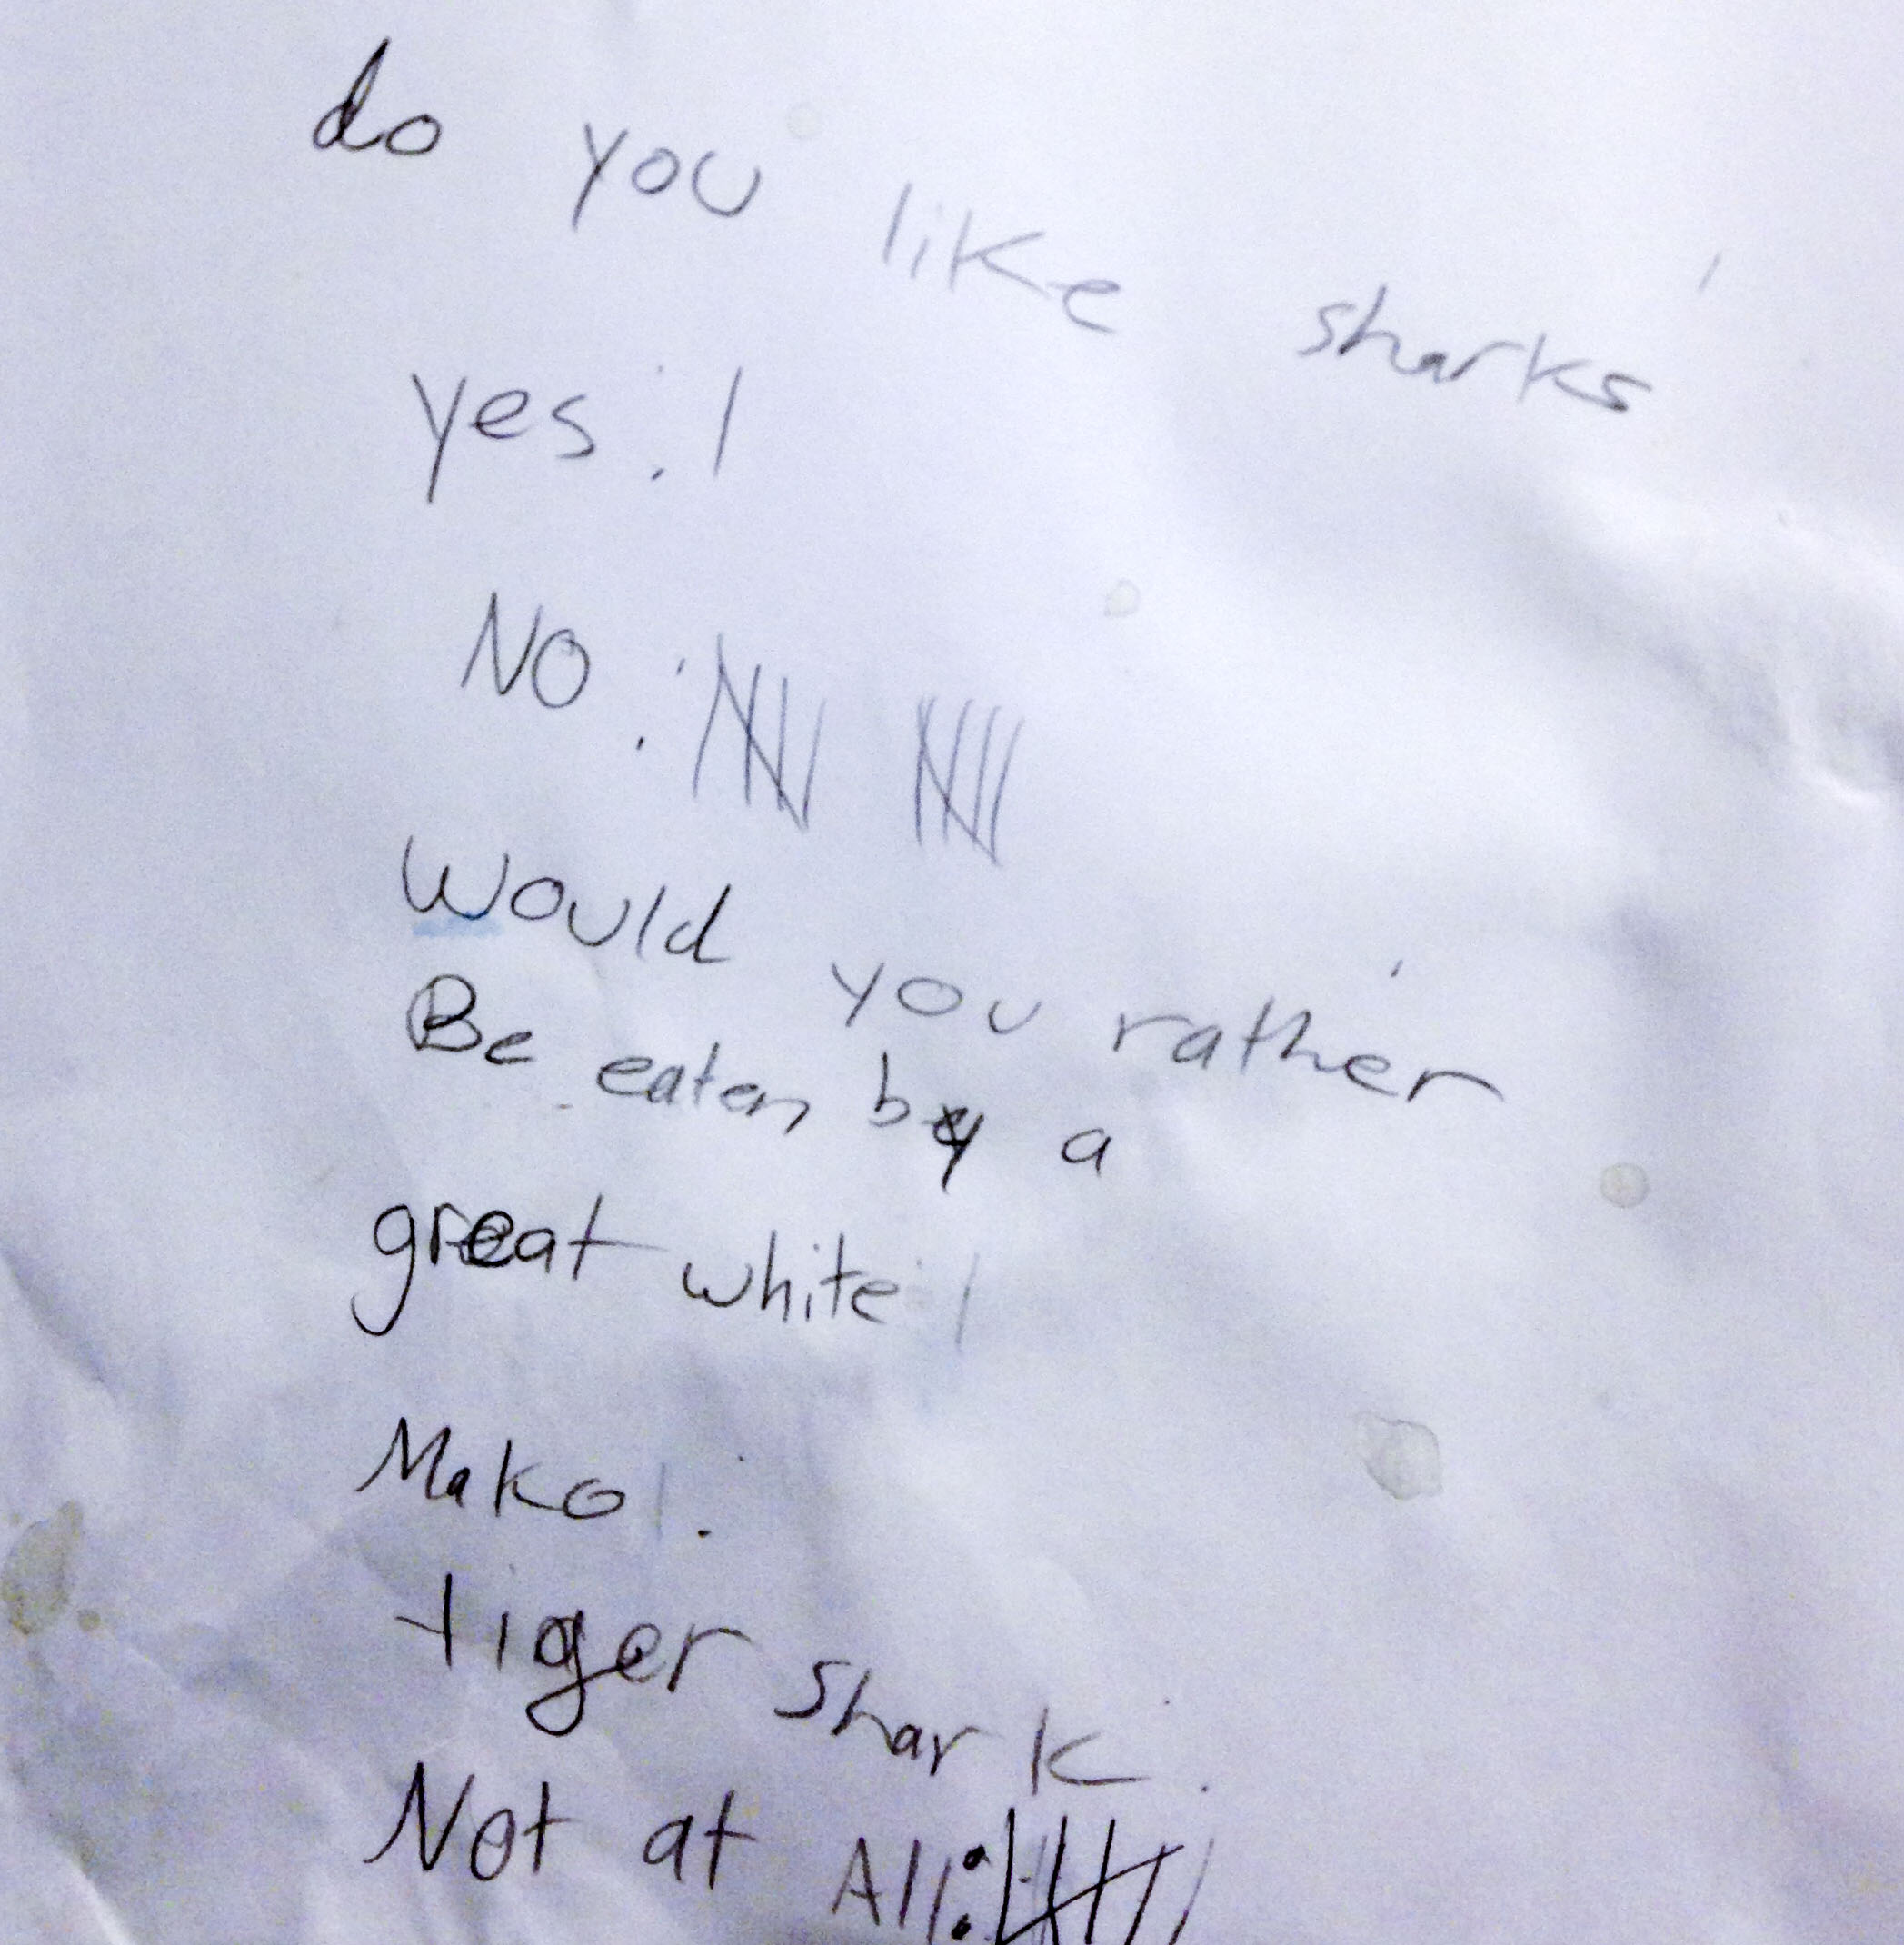 do you like sharks
yes: |
NO: |||| ||||
Would you rather
Be eaten by a
great white: |
Mako:
tiger shark:
Not at All: